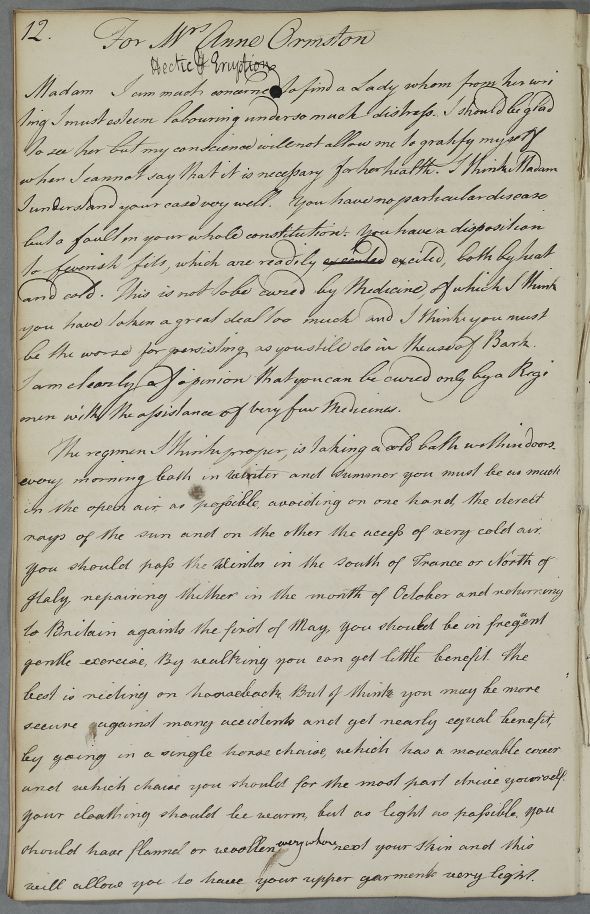 12.
For Mrs Anne Ormston
Hectic & Eruptions
Madam I am much concerned to find a Lady whom from her wri
ting I must esteem labouring under so much distress. I should be glad
to see her but my conscience will not allow me to gratify myself
when I cannot say that it is necessary for her health. I think Madam
I understand your case very well. You have no particular disease
but a fault in your whole constitution. You have a disposition
to feverish fits, which are readily excited, both by heat
and cold. This is not to be cured by Medicine, of which I think
you have taken a great deal too much and I think you must
be the worse for persisting as you still do in the use of Bark.
I am clearly of opinion that you can be cured only by a Regi
men with the assistance of very few Medicines.
The regimen I think proper, is taking a cold bath within doors
every morning both in winter and Summer you must be as much
in the open air as possible, avoiding on one hand, the derect
rays of the sun and on the other the access of very cold air.
You should pass the Winter in the south of France or North of
Italy, repairing thither in the month of October and returning
to Britain againts the first of May, you should be in freqent
gentle exercise, By walking you can get little benefit. The
best is rieding on horseback. But I think you may be more
secure against many accidents and get nearly equal benefit,
by going in a single horse chaise, which has a moveable cover
and which chaise you should for the most part drive yourself.
your cloathing should be warm, but as light as possible, you
should have flannel or woollen every where next your skin and this
will allow you to have your upper garments very light.